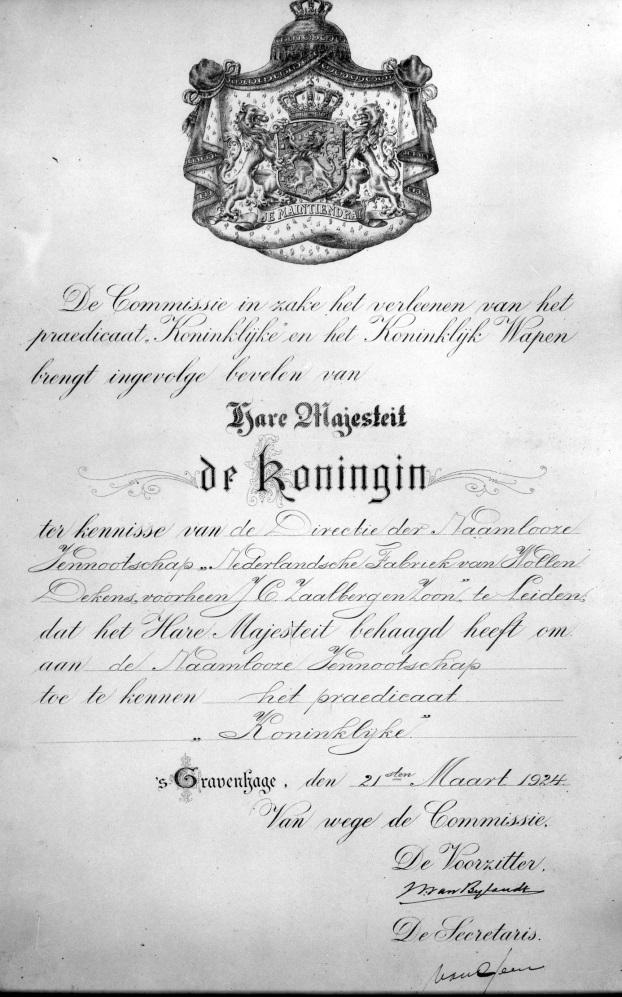 JE MAINTIENDRAI
De Commissie in zake het verleenen van het
praedicaat „Koninklijke" en het Koninklijk Wapen
brengt ingevolge bevelen van
Hare Majesteit
de Koningin
ter kennisse van de Directie der Naamlooze
Vennootschap „Nederlandsche Fabriek van Wollen
Dekens, voorheen J. C. Zaalberg en Zoon", te Leiden,
dat het Hare Majesteit behaagd heeft om
aan de Naamlooze Vennootschap
toe te kennen het praedicaat
„Koninklijke"
's Gravenhage, den 21sten Maart 1924.
Van wege de Commissie.
De Voorzitter.
W. van Bylandt
De Secretaris.